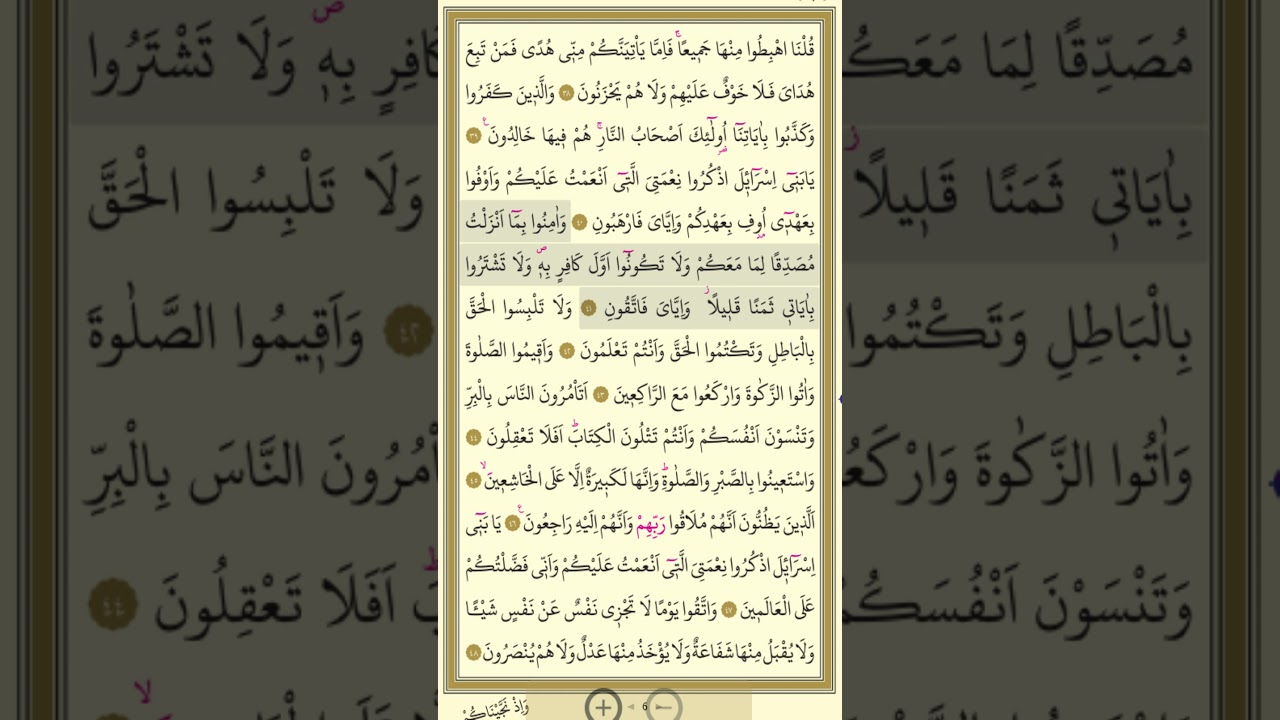 قُلْنَا اهْبِطُوا مِنْهَا جَمٖيعًاۚ فَاِمَّا يَاْتِيَنَّكُمْ مِنّٖى هُدًى فَمَنْ تَبِعَ
هُدَاىَ فَلَا خَوْفٌ عَلَيْهِمْ وَلَا هُمْ يَحْزَنُونَ ٣٨ وَالَّذٖينَ كَفَرُوا
وَكَذَّبُوا بِاٰيَاتِنَٓا اُولٰٓئِكَ اَصْحَابُ النَّارِۚ هُمْ فٖيهَا خَالِدُونَࣖ ٣٩
يَابَنٖٓى اِسْرَٓائٖلَ اذْكُرُوا نِعْمَتِىَ الَّتٖٓى اَنْعَمْتُ عَلَيْكُمْ وَاَوْفُوا
بِعَهْدٖٓى اُوفِ بِعَهْدِكُمْ وَاِيَّاىَ فَارْهَبُونِ ٤٠ وَاٰمِنُوا بِمَٓا اَنْزَلْتُ
مُصَدِّقًا لِمَا مَعَكُمْ وَلَا تَكُونُٓوا اَوَّلَ كَافِرٍ بِهٖࣕ وَلَا تَشْتَرُوا
بِاٰيَاتٖى ثَمَنًا قَلٖيلًاؗ وَاِيَّاىَ فَاتَّقُونِ ٤١ وَلَا تَلْبِسُوا الْحَقَّ
بِالْبَاطِلِ وَتَكْتُمُوا الْحَقَّ وَاَنْتُمْ تَعْلَمُونَ ٤٢ وَاَقٖيمُوا الصَّلٰوةَ
وَاٰتُوا الزَّكٰوةَ وَارْكَعُوا مَعَ الرَّاكِعٖينَ ٤٣ اَتَاْمُرُونَ النَّاسَ بِالْبِرِّ
وَتَنْسَوْنَ اَنْفُسَكُمْ وَاَنْتُمْ تَتْلُونَ الْكِتَابَؕ اَفَلَا تَعْقِلُونَ ٤٤
وَاسْتَعٖينُوا بِالصَّبْرِ وَالصَّلٰوةِؕ وَاِنَّهَا لَكَبٖيرَةٌ اِلَّا عَلَى الْخَاشِعٖينَۙ ٤٥
اَلَّذٖينَ يَظُنُّونَ اَنَّهُمْ مُلَاقُوا رَبِّهِمْ وَاَنَّهُمْ اِلَيْهِ رَاجِعُونَࣖ ٤٦ يَا بَنٖٓى
اِسْرَٓائٖلَ اذْكُرُوا نِعْمَتِىَ الَّتٖٓى اَنْعَمْتُ عَلَيْكُمْ وَاَنّٖى فَضَّلْتُكُمْ
عَلَى الْعَالَمٖينَ ٤٧ وَاتَّقُوا يَوْمًا لَا تَجْزٖى نَفْسٌ عَنْ نَفْسٍ شَيْـًٔا
وَلَا يُقْبَلُ مِنْهَا شَفَاعَةٌ وَلَا يُؤْخَذُ مِنْهَا عَدْلٌ وَلَا هُمْ يُنْصَرُونَ ٤٨
وَاِذْ نَجَّيْنَاكُمْ
6